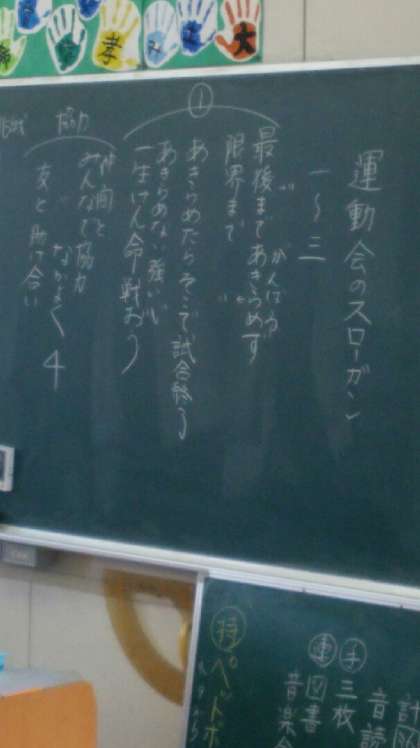 運動会のスローガン
一～三
①
最後まであきらめず
がんばろう
限界まで
あきらめたらそこで試合終了
あきらめない強い心
一生けん命戦おう
仲間と
みんなで協力
なかよく
友と助け合い
4
孝
大
持
ペットボ
手
三枚
音読
計
図書
音楽会